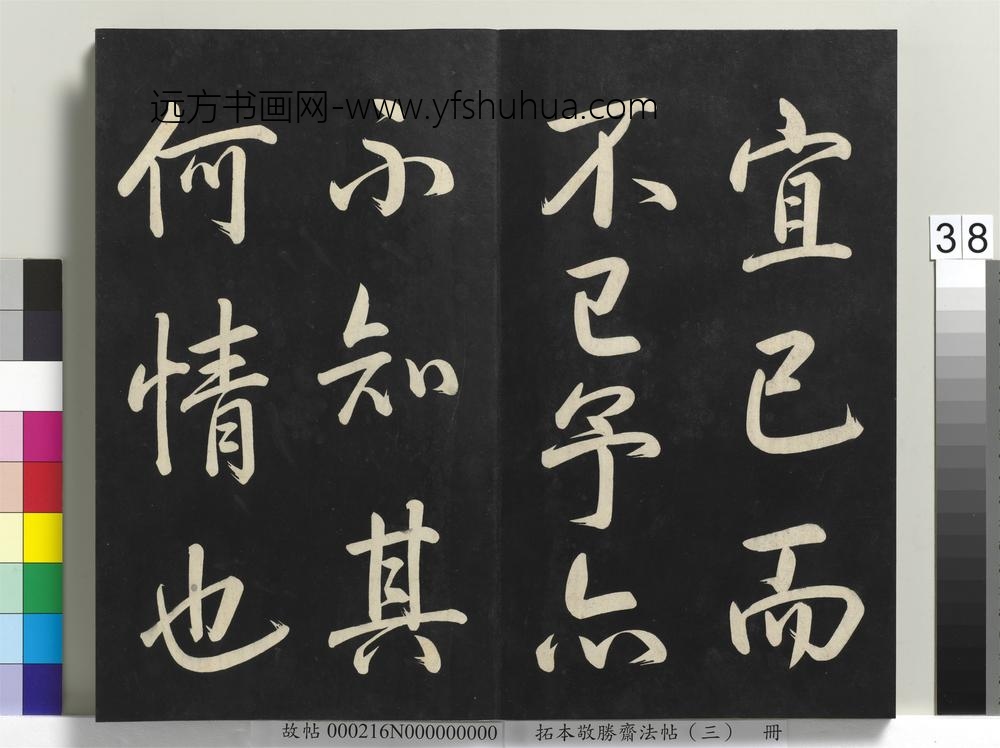 远方书画网-www.yfshuhua.com
宜已而
不已予亦
不知其
何情也
38
故帖 000216N000000000
拓本敬勝齋法帖（三） 冊